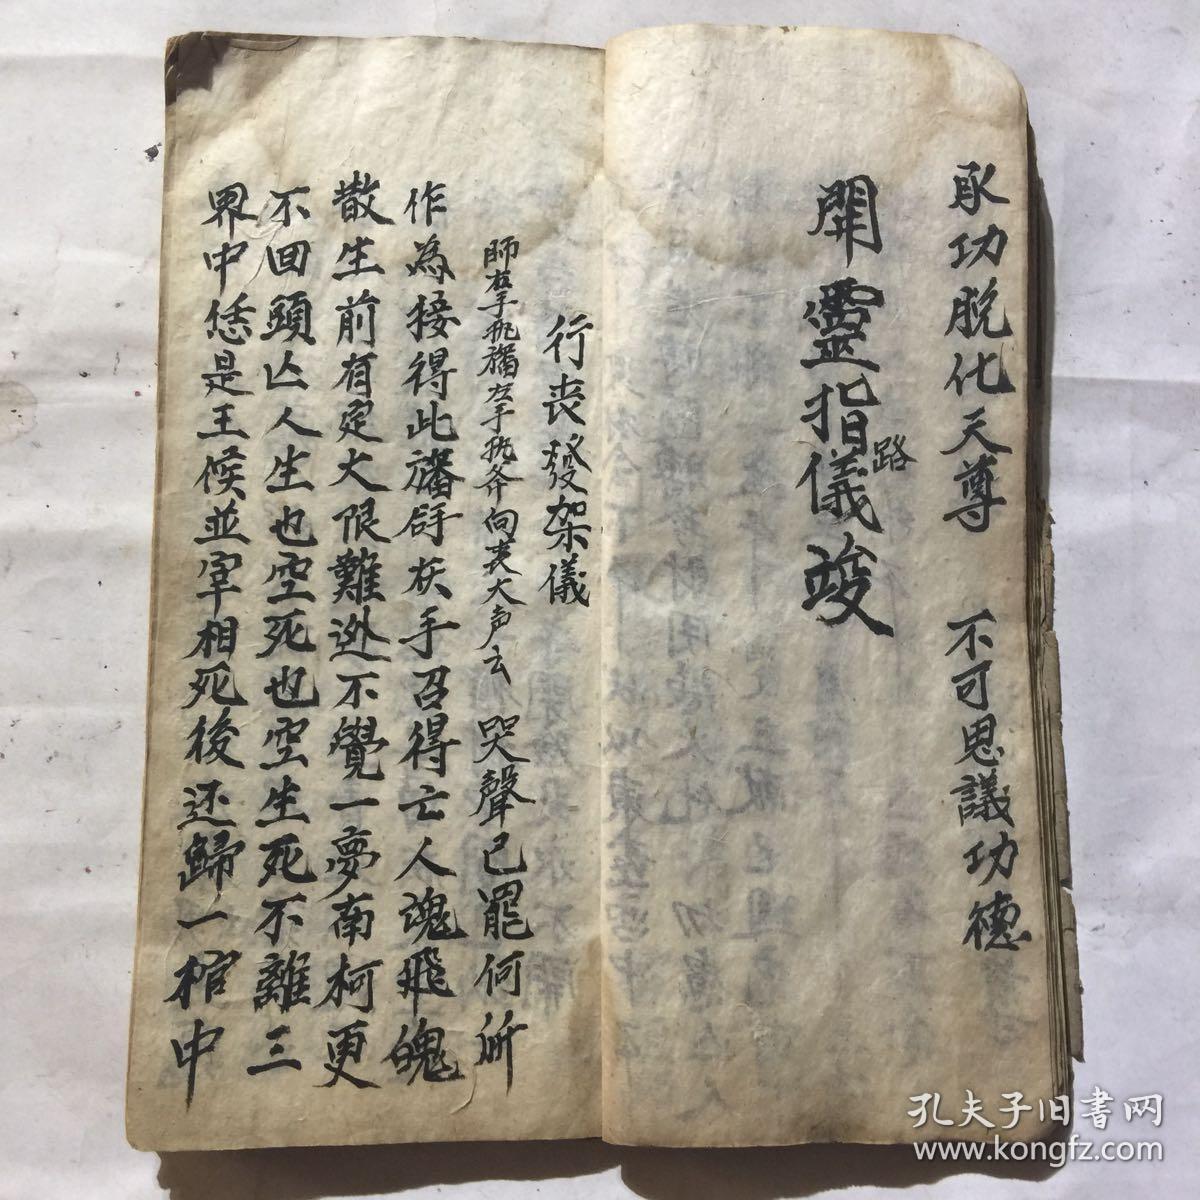 承功脱化天尊　不可思議功德
開靈指路儀竣
行丧發架儀
師右手执旛左手执斧向丧大声云　哭聲已罷何所
作為接得此旛斧在手召得亡人魂飛魄
散生前有定大限難逃不覺一夢南柯更
不回頭亾人生也空死也空生死不離三
界中恁是王候並宰相死後还歸一棺中
孔夫子旧书网
www.kongfz.com